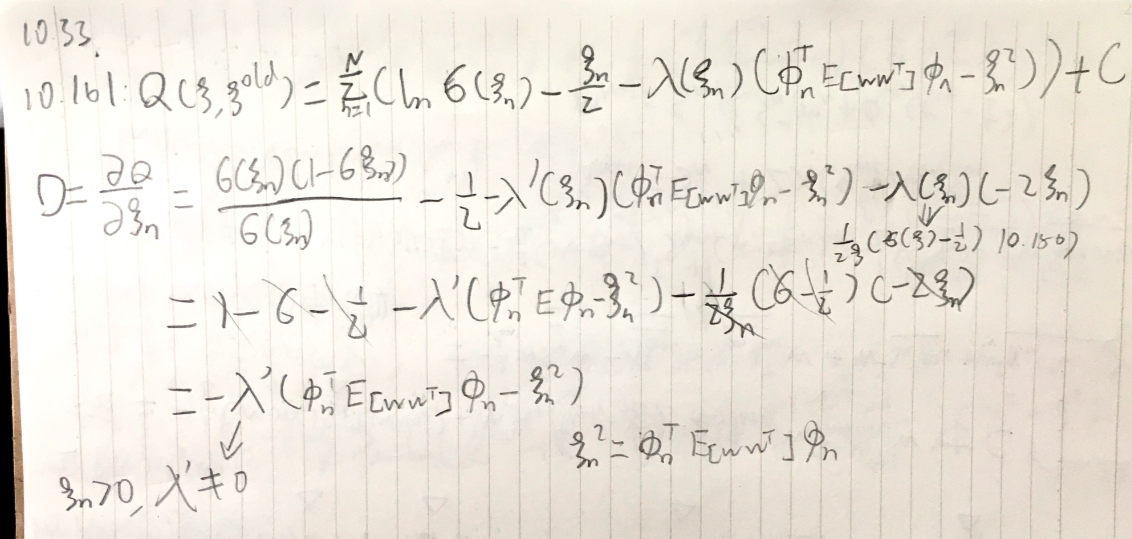 10.33.
10.161: Q(ξ, ξ^old) = Σ_{n=1}^N (ln σ(ξ_n) - ξ_n/2 - λ(ξ_n)(φ_n^T E[ww^T] φ_n - ξ_n^2)) + C
D = ∂Q/∂ξ_n = σ(ξ_n)(1-σξ_n))/σ(ξ_n) - 1/2 - λ'(ξ_n)(φ_n^T E[ww^T] φ_n - ξ_n^2) - λ(ξ_n)(-2ξ_n)
1/2ξ (σ(ξ) - 1/2) 10.150)
= 1 - σ - 1/2 - λ'(φ_n^T E φ_n - ξ_n^2) - 1/2ξ_n (σ - 1/2)(-2ξ_n)
= -λ'(φ_n^T E[ww^T] φ_n - ξ_n^2)
ξ_n^2 = φ_n^T E[ww^T] φ_n
ξ_n>0, λ' ≠ 0